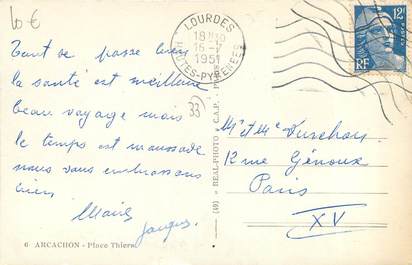 10 €
LOURDES
18H30
16-7
1951
HTES-PYRENEES
12F
POSTES
RF
Tout se passe bien
la santé est meilleure
beau voyage mais
le temps est maussade
nous vous embrassons
bien
Marie
Jacques
33
(49) - REAL-PHOTO C.A.P. PARIS
Mr et Me
12 rue Génoux
Paris
XV
6 ARCACHON - Place Thiers